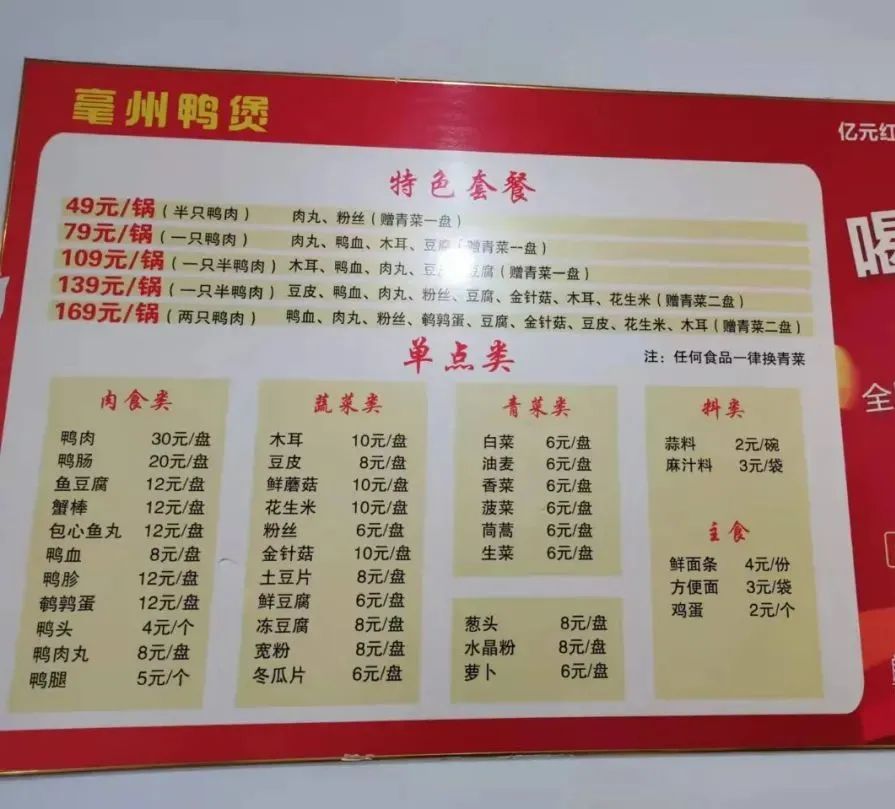 亳州鸭煲
亿元红
喝
全
特色套餐
49元/锅（半只鸭肉） 肉丸、粉丝（赠青菜一盘）
79元/锅（一只鸭肉） 肉丸、鸭血、木耳、豆腐（赠青菜一盘）
109元/锅（一只半鸭肉） 木耳、鸭血、肉丸、豆 豆腐（赠青菜一盘）
139元/锅（一只半鸭肉） 豆皮、鸭血、肉丸、粉丝、豆腐、金针菇、木耳、花生米（赠青菜二盘）
169元/锅（两只鸭肉） 鸭血、肉丸、粉丝、鹌鹑蛋、豆腐、金针菇、豆皮、花生米、木耳（赠青菜二盘）
单点类
注：任何食品一律换青菜
肉食类
鸭肉 30元/盘
鸭肠 20元/盘
鱼豆腐 12元/盘
蟹棒 12元/盘
包心鱼丸 12元/盘
鸭血 8元/盘
鸭胗 12元/盘
鹌鹑蛋 12元/盘
鸭头 4元/个
鸭肉丸 8元/盘
鸭腿 5元/个
蔬菜类
木耳 10元/盘
豆皮 8元/盘
鲜蘑菇 10元/盘
花生米 10元/盘
粉丝 6元/盘
金针菇 10元/盘
土豆片 8元/盘
鲜豆腐 6元/盘
冻豆腐 8元/盘
宽粉 8元/盘
冬瓜片 6元/盘
青菜类
白菜 6元/盘
油麦 6元/盘
香菜 6元/盘
菠菜 6元/盘
茼蒿 6元/盘
生菜 6元/盘
葱头 8元/盘
水晶粉 8元/盘
萝卜 6元/盘
料类
蒜料 2元/碗
麻汁料 3元/袋
主食
鲜面条 4元/份
方便面 3元/袋
鸡蛋 2元/个